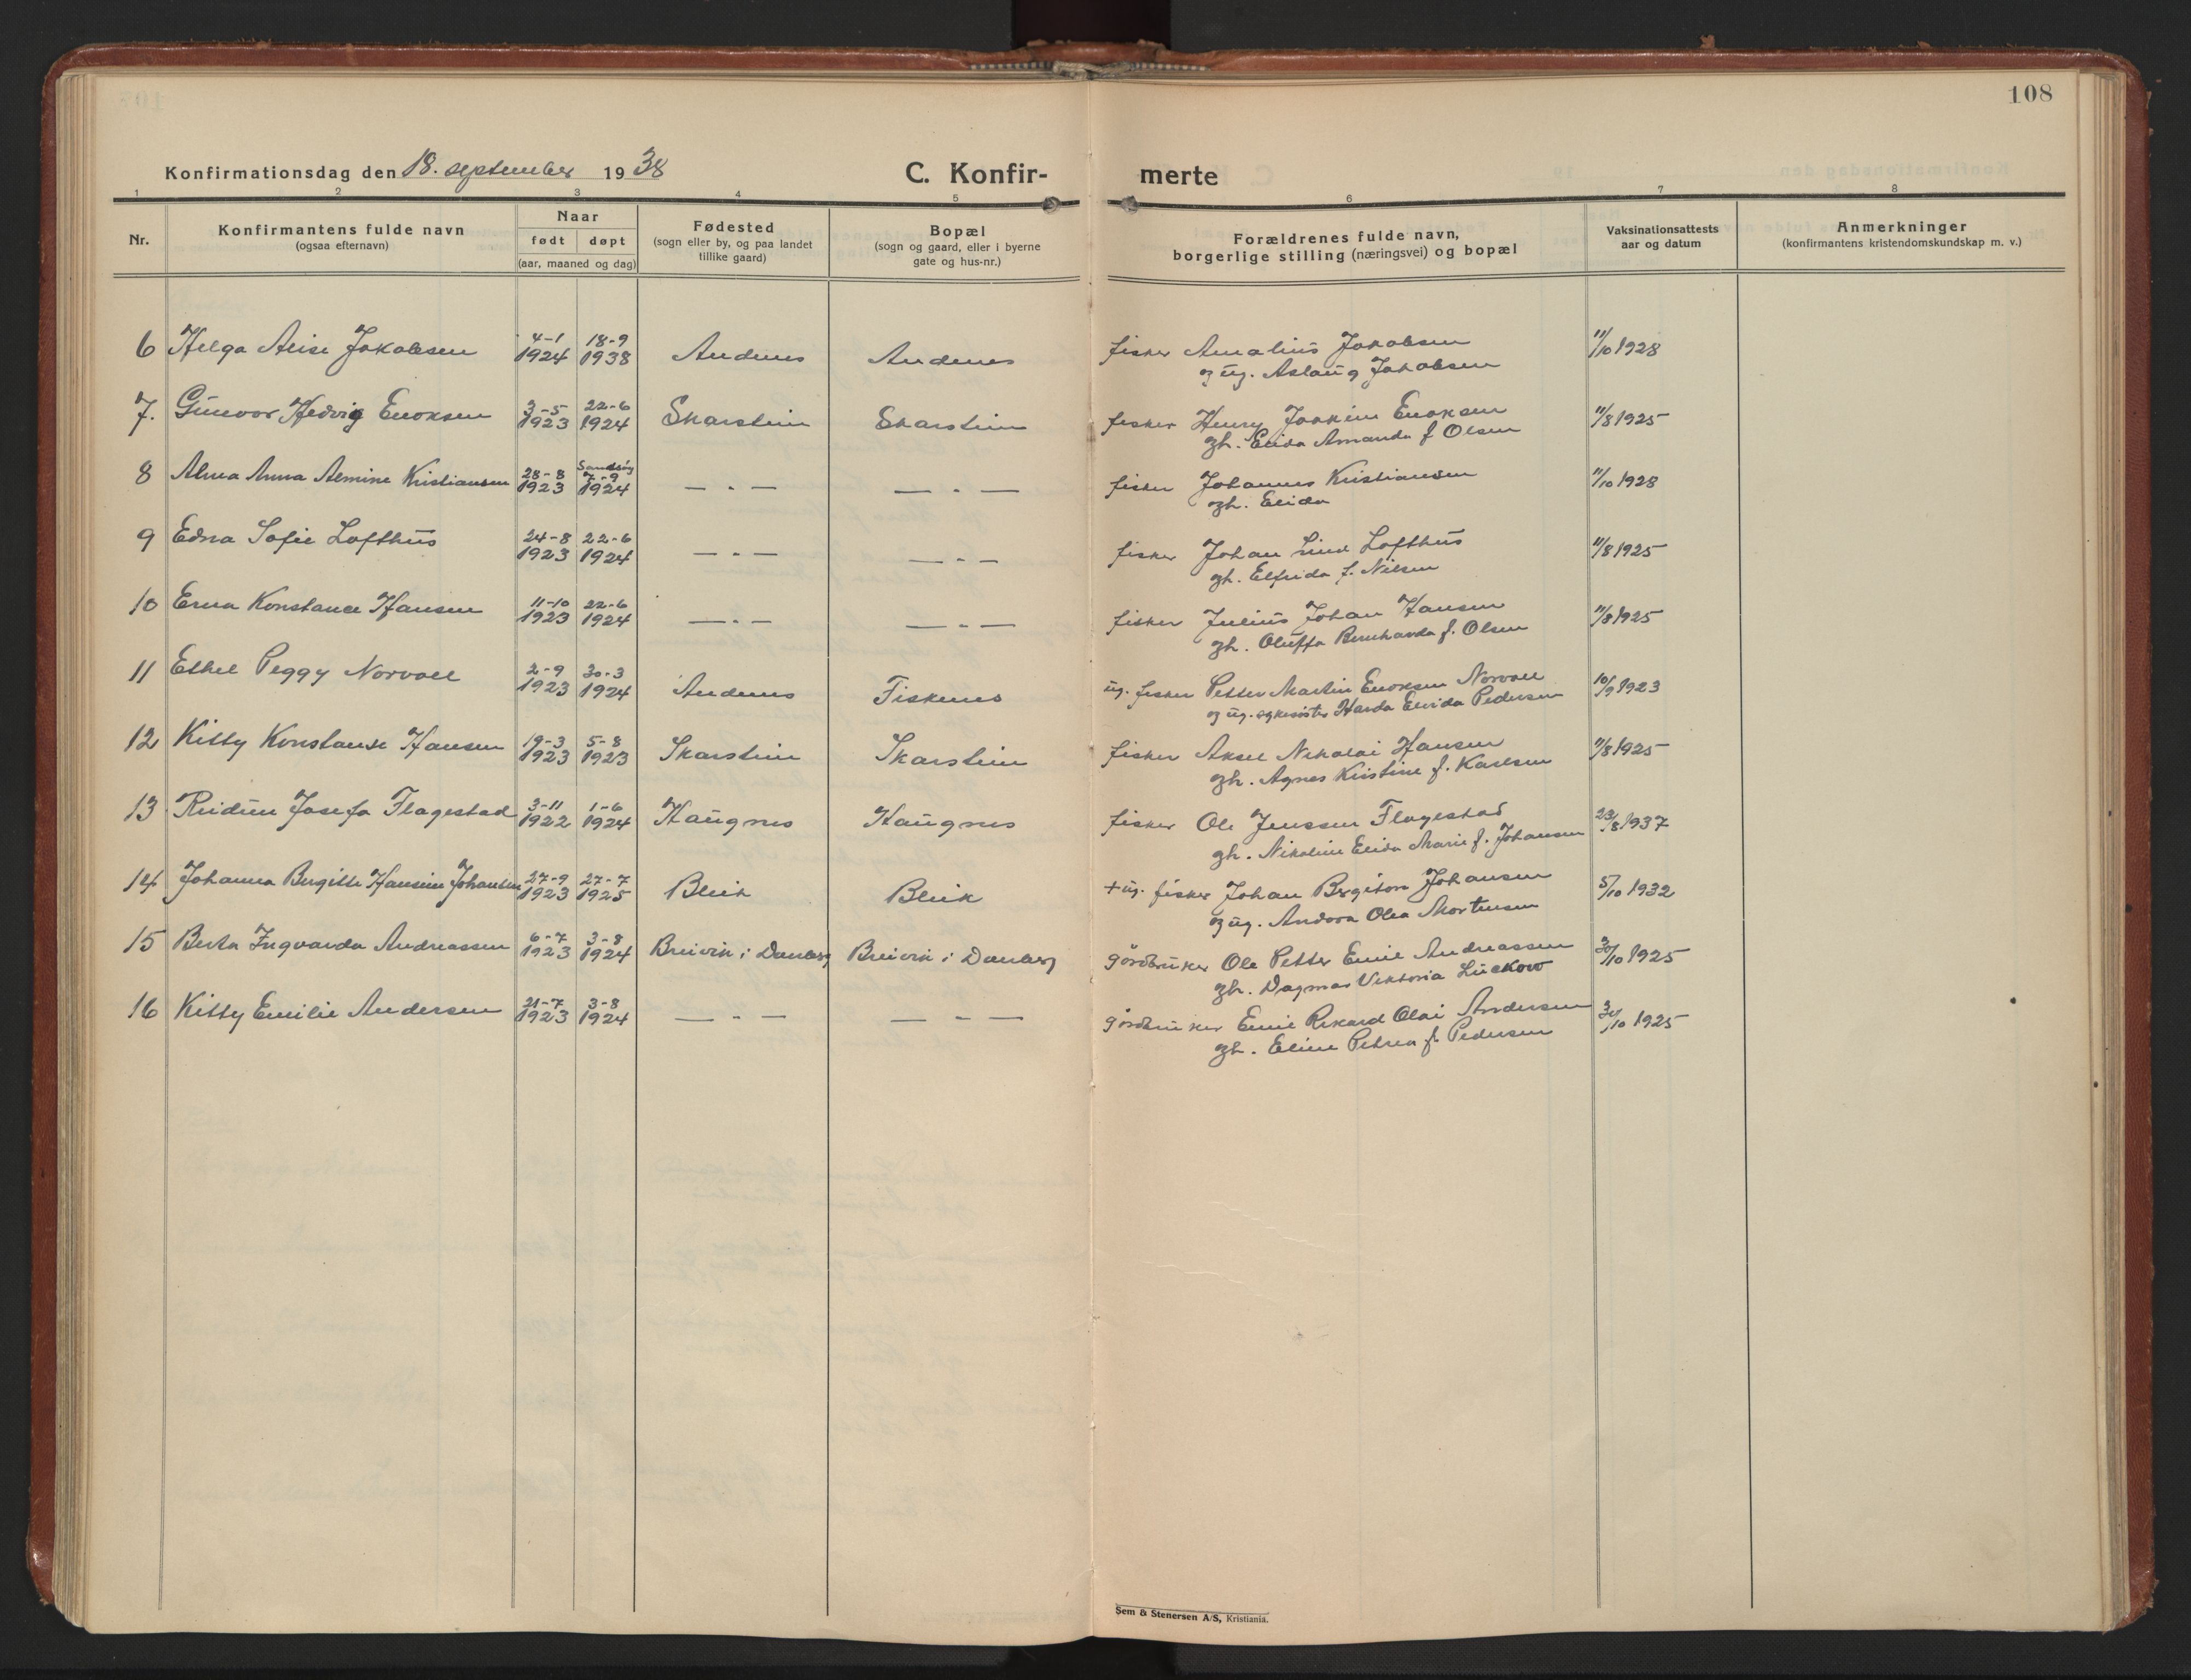 108
Konfirmationsdag den 18. september 1938
C. Konfir-
merte
1 2 3 4 5 6 7 8
Nr.
Konfirmantens fulde navn
(ogsaa efternavn)
Naar
født døpt
(aar, maaned og dag)
Fødested
(sogn eller by, og paa landet
tillike gaard)
Bopæl
(sogn og gaard, eller i byerne
gate og hus-nr.)
Forældrenes fulde navn,
borgerlige stilling (næringsvei) og bopæl
Vaksinationsattests
aar og datum
Anmerkninger
(konfirmantens kristendomskundskap m. v.)
6 Helga Alise Jakobsen 4-1 1924 18-9 1938 Andenes Andenes fisker Amalius Jakobsen 11/10 1928
og ug. Aslaug Jakobsen
7. Gunvor Hedvig Enoksen 3-5 1923 22-6 1924 Skarstein Skarstein fisker Henry Joakim Enoksen 11/8 1925
gh. Elida Amanda f Olsen
8 Alma Anna Almine Kristiansen 28-8 1923 Sandsøy 7-9 1924 — " — — " — fisker Johannes Kristiansen 11/10 1928
gh. Elida
9 Edna Sofie Lofthus 24-8 1923 22-6 1924 — " — — " — fisker Johan Lind Lofthus 11/8 1925
gh. Elfrida f. Nilsen
10 Erna Konstance Hansen 11-10 1923 22-6 1924 — " — — " — fisker Julius Johan Hansen 11/8 1925
gh. Oluffa Bernharda f. Olsen
11 Ethel Peggy Norvoll 2-9 1923 30-3 1924 Andenes Fiskenes ug. fisker Petter Martin Enoksen Norvoll 10/9 1923
og ug. sykesøster Harda Elvida Pedersen
12 Kitty Konstanse Hansen 19-3 1923 5-8 1923 Skarstein Skarstein fisker Aksel Nikolai Hansen 11/8 1925
gh. Agnes Kristine f. Karlsen
13 Reidun Josefa Flagestad 3-11 1922 1-6 1924 Haugnes Haugnes fisker Ole Jenssen Flagestad 23/8 1937
gh. Nikoline Elida Marie f. Johansen
14 Johanna Bergitte Hansine Johansen 27-9 1923 27-7 1925 Bleik Bleik + ug. fisker Johan Bergiton Johansen 5/10 1932
og ug. Andora Olea Mortensen
15 Berta Ingvarda Andreassen 6-7 1923 3-8 1924 Breivik i Danberg Breivik i Danberg gårdbruker Ole Petter Emil Andreassen 30/10 1925
gh. Dagmar Viktoria Lückow
16 Kitty Emilie Andersen 21-7 1923 3-8 1924 — " — — " — gårdbruker Emil Rikard Olai Andersen 30/10 1925
gh. Eline Petrea f. Pedersen
Sem & Stenersen A/S, Kristiania.